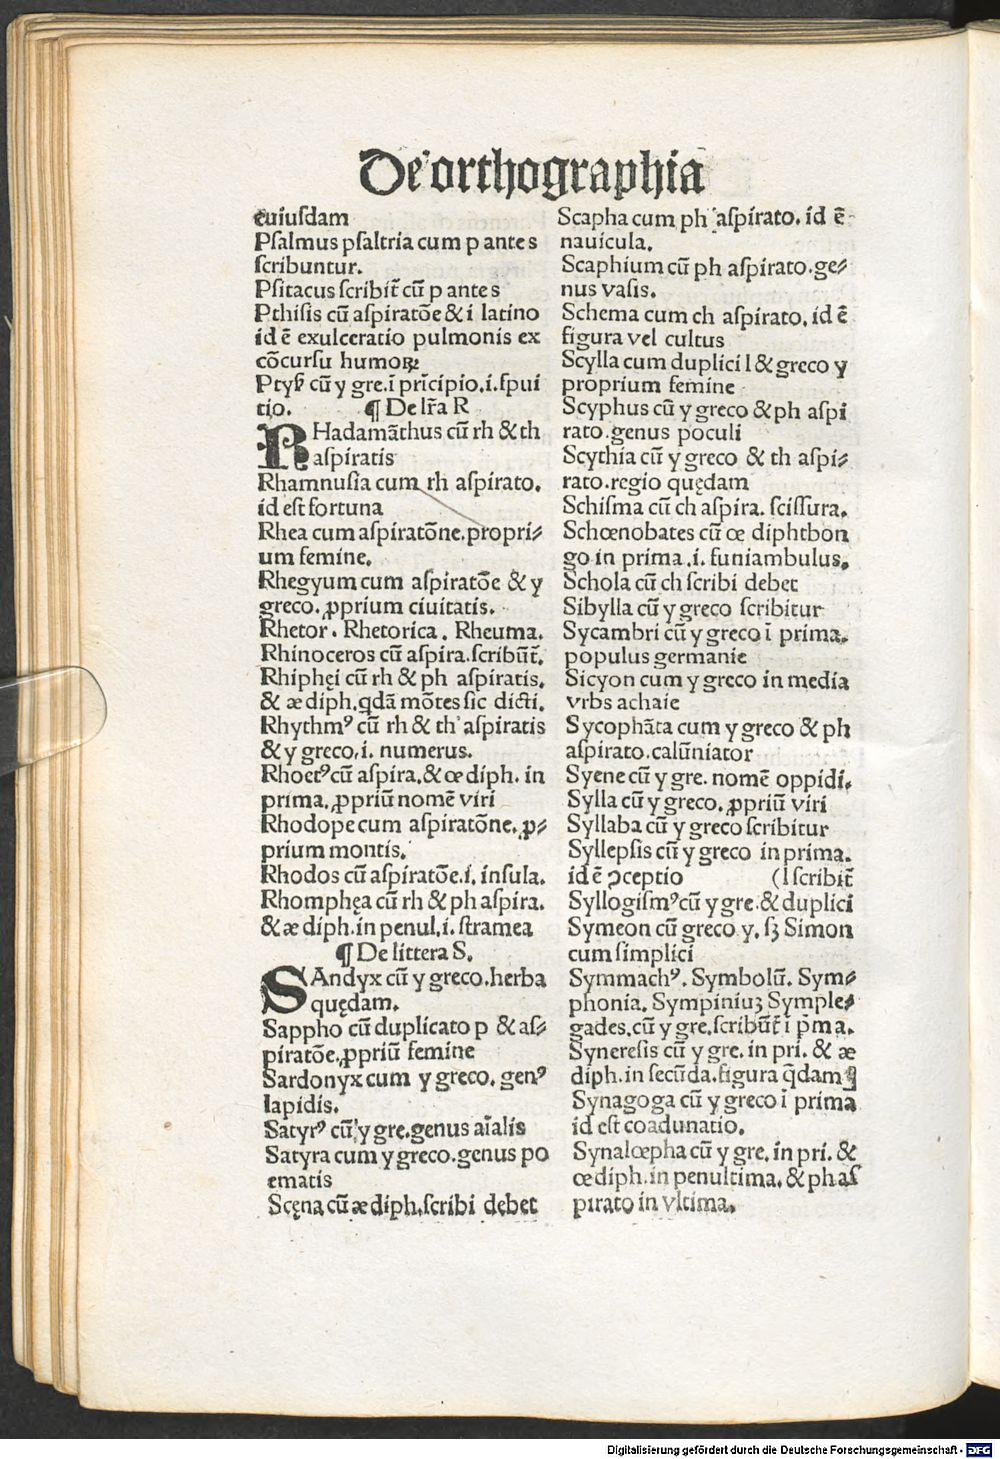 De orthographia
cuiuſdam
Pſalmus pſaltria cum p ante s
ſcribuntur.
Pſitacus ſcribit̄ cū p ante s
Pthiſis cū aſpiratōe & i latino
id ē exulceratio pulmonis ex
cōcurſu humoꝝ
Ptyſ cū y gre. ī prīcipio. i. ſpui
tio. ¶ De lr̄a R
RHadamāthus cū rh & th
aſpiratis
Rhamnuſia cum rh aſpirato.
id eſt fortuna
Rhea cum aſpiratōne. propri⸗
um femine.
Rhegyum cum aſpiratōe & y
greco. ꝓprium ciuitatis.
Rhetor. Rhetorica. Rheuma.
Rhinoceros cū aſpira. ſcribūt̄.
Rhiphęi cū rh & ph aſpiratis.
& æ diph. qdā mōtes ſic dicti.
Rhythmꝰ cū rh & th aſpiratis
& y greco. i. numerus.
Rhoetꝰ cū aſpira. & œ diph. in
prima. ꝓpriū nomē viri
Rhodope cum aſpiratōne. ꝓ⸗
prium montis.
Rhodos cū aſpiratōe. i. inſula.
Rhomphęa cū rh & ph aſpira.
& æ diph. in penul. i. ſtramea
¶ De littera S.
SAndyx cū y greco. herba
quędam.
Sappho cū duplicato p & aſ⸗
piratōe. ꝓpriū femine
Sardonyx cum y greco. genꝰ
lapidis.
Satyrꝰ cū y gre. genus aīalis
Satyra cum y greco. genus po
ematis
Scęna cū æ diph. ſcribi debet
Scapha cum ph aſpirato. id ē
nauicula.
Scaphium cū ph aſpirato. ge⸗
nus vaſis.
Schema cum ch aſpirato. id ē
figura vel cultus
Scylla cum duplici l & greco y
proprium femine
Scyphus cū y greco & ph aſpi
rato. genus poculi
Scythia cū y greco & th aſpi⸗
rato. regio quędam
Schiſma cū ch aſpira. ſciſſura.
Schœnobates cū œ diphthon
go in prima. i. funiambulus.
Schola cū ch ſcribi debet
Sibylla cū y greco ſcribitur
Sycambri cū y greco ī prima.
populus germanie
Sicyon cum y greco in media
vrbs achaie
Sycophāta cum y greco & ph
aſpirato. calūniator
Syene cū y gre. nomē oppidi.
Sylla cū y greco. ꝓpriū viri
Syllaba cū y greco ſcribitur
Syllepſis cū y greco in prima.
id ē ꝯceptio (l ſcribit̄
Syllogiſmꝰ cū y gre. & duplici
Symeon cū greco y. ſꝫ Simon
cum ſimplici
Symmachꝰ. Symbolū. Sym⸗
phonia. Sympiniuꝫ Symple⸗
gades. cū y gre. ſcribūt̄ ī pͥma.
Synereſis cū y gre. in pri. & æ
diph. in ſecūda. figura q̄dam
Synagoga cū y greco ī prima
id eſt coadunatio.
Synalœpha cū y gre. in pri. &
œ diph. in penultima. & ph aſ
pirato in vltima.
Digitalisierung gefördert durch die Deutsche Forschungsgemeinschaft - DFG